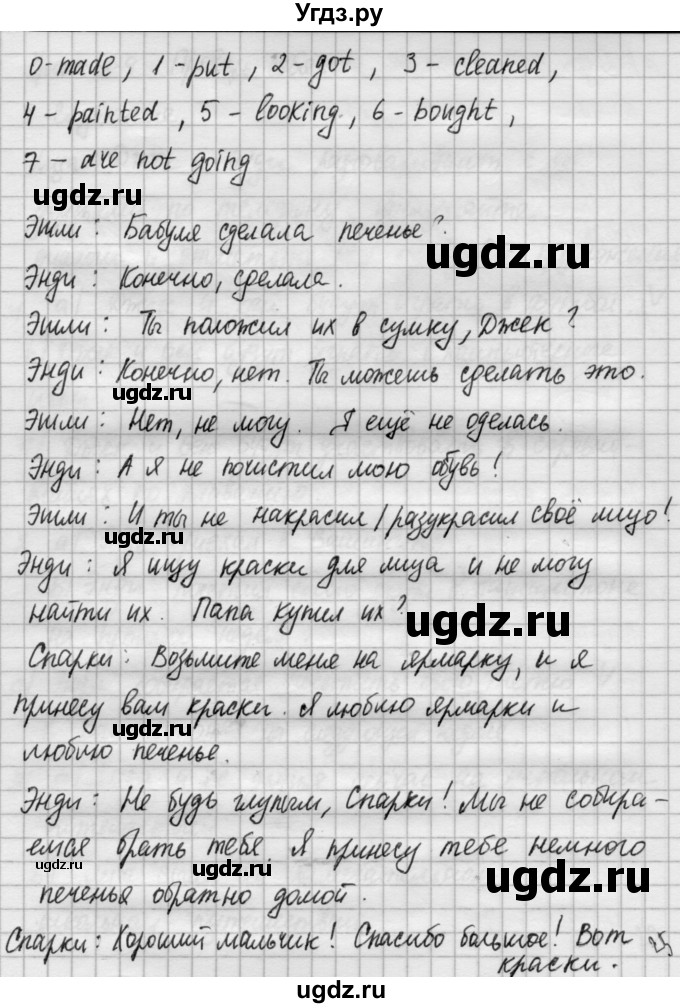 Угдз.ру
0-made, 1-put, 2-got, 3-cleaned,
4-painted, 5-looking, 6-bought,
7-are not going
ugdz.ru
Эшли: Бабуля сделала печенье?
ugdz.ru
Энди: Конечно, сделала.
ugdz.ru
Эшли: Ты положил их в сумку, Джек?
Энди: Конечно, нет. Ты можешь сделать это.
ugdz.ru
Эшли: Нет, не могу. Я ещё не оделась.
Энди: А я не почистил мою обувь!
Эшли: И ты не накрасил/разукрасил своё лицо!
ugdz.ru
Энди: Я ищу краски для лица и не могу
найти их. Папа купил их?
ugdz.ru
Спарки: Возьмите меня на ярмарку, и я
принесу вам краски. Я люблю ярмарки и
ugdz.ru
люблю печенье.
Энди: Не будь глупым, Спарки! Мы не собира-
емся брать тебя. Я принесу тебе немного
ugdz.ru
ugdz.ru
печенья обратно домой.
ugdz.ru
Спарки: Хороший мальчик! Спасибо большое! Вот
краски.